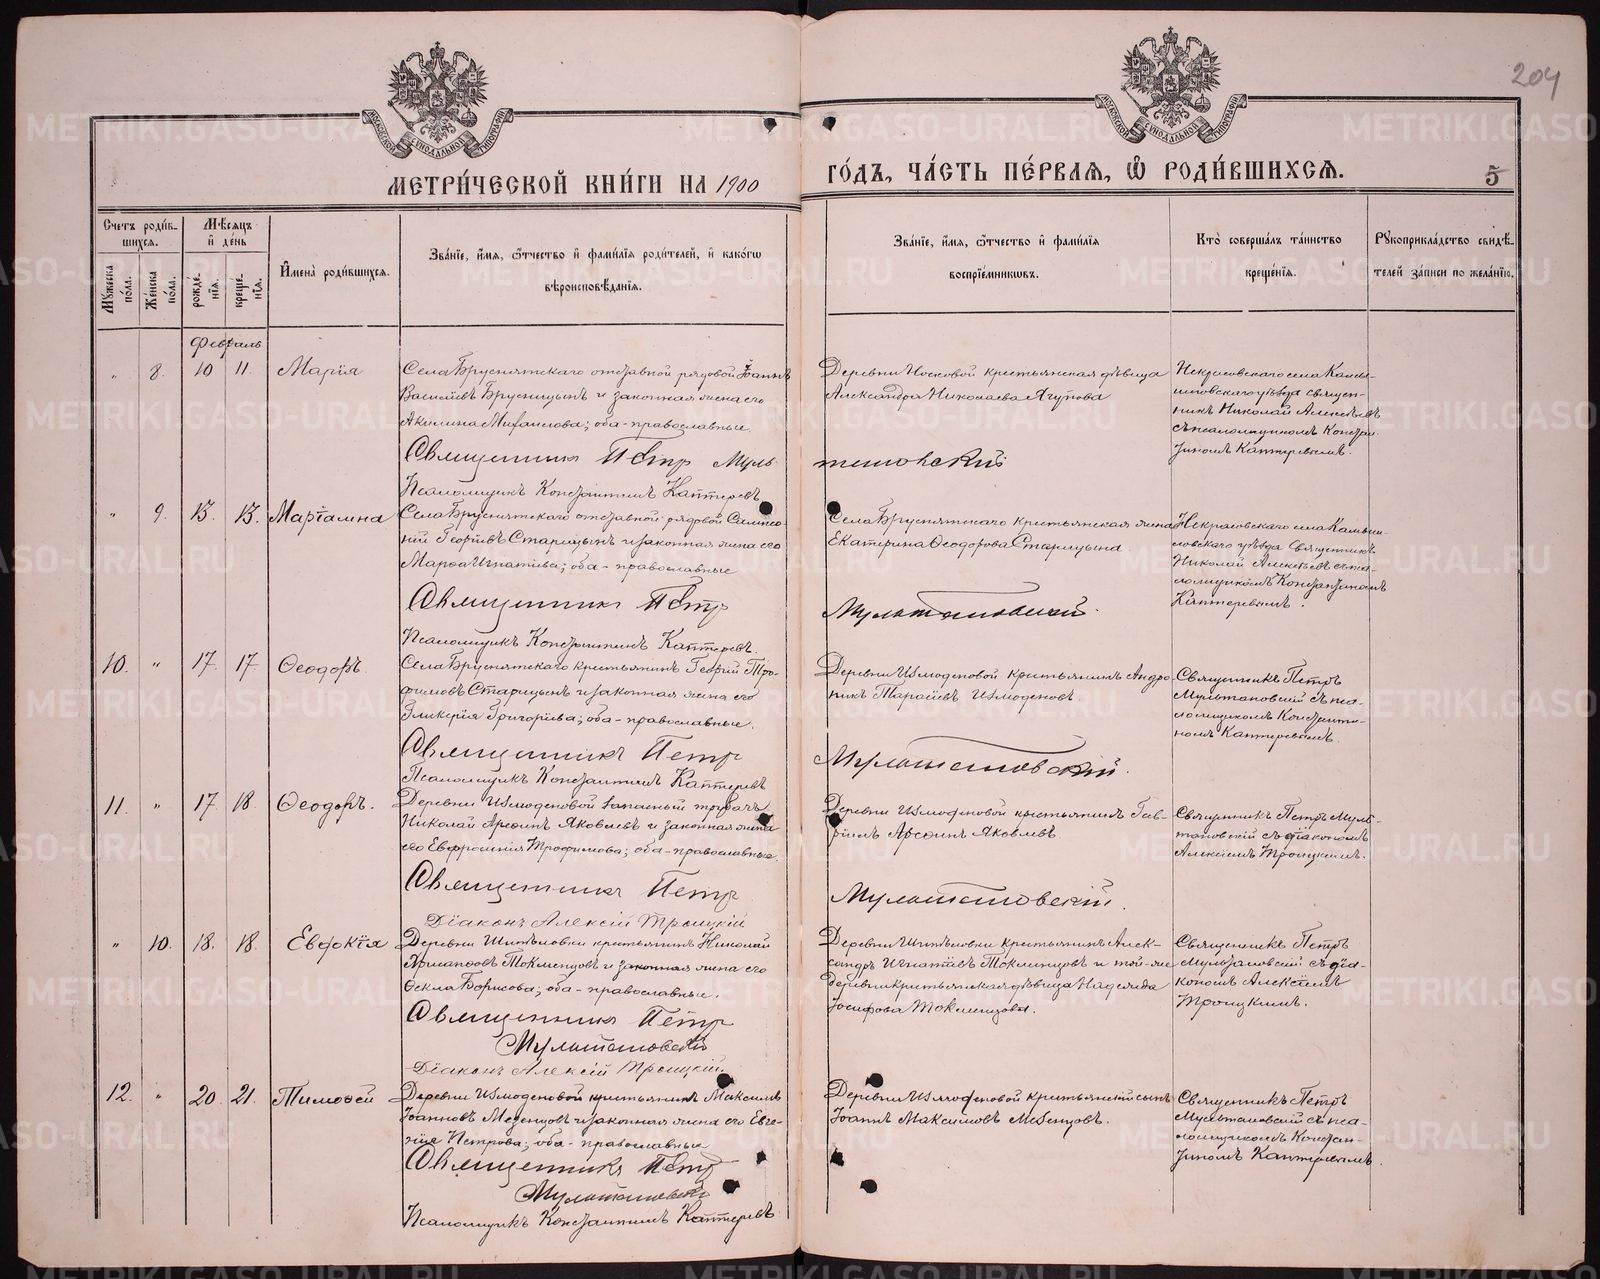 204
МОСКОВСКОЙ СИНОДАЛЬНОЙ ТИПОГРАФІИ
МОСКОВСКОЙ СИНОДАЛЬНОЙ ТИПОГРАФІИ
МЕТРИ́ЧЕСКОЙ КНИ́ГИ НА 1900
ГО́ДЪ, ЧА́СТЬ ПЕ́РВАѦ, Ѽ РОДИ́ВШИХСѦ.
5
Счетъ роди́в-
шихсѧ.
Мꙋ́жеска
по́ла.
Же́нска
по́ла.
Мѣ́сѧцъ
и҆ де́нь
рожде́-
нїѧ.
креще́-
нїѧ.
И҆мена̀ роди́вшихсѧ.
Зва́нїе, и҆́мѧ, ѻ҆́тчество и҆ фами́лїѧ роди́телей, и҆ како́гѡ
вѣроисповѣ́данїѧ.
Зва́нїе, и҆́мѧ, ѻ҆́тчество и҆ фами́лїѧ
воспрїе́мникѡвъ.
Кто̀ соверша́лъ та́инство
креще́нїѧ.
Рꙋкоприкла́дство свидѣ́-
телей за́писи по жела́нїю.
Февраль
" 8. 10 11. Марія
Села Бруснятскаго отставной рядовой Іоаннъ
Васильевъ Брусницынъ и законная жена его
Акилина Михаилова; оба - православные.
Священникъ Петръ Муль
Псаломщикъ Константинъ Каптеревъ
Деревни Носковой крестьянская дѣвица
Александра Николаева Ягупова
тановскій
Некрасовскаго села Камы-
шловскаго уѣзда священ-
никъ Николай Алексѣевъ
съ псаломщикомъ Констан-
тиномъ Каптеревымъ.
" 9. 13. 13. Маріамна
Села Бруснятскаго отставной рядовой Сампсо-
ній Георгіевъ Старицынъ и законная жена его
Марѳа Игнатіева; оба - православные
Священникъ Петръ
Псаломщикъ Константинъ Каптеревъ.
Села Бруснятскаго крестьянская жена
Екатерина Ѳеодорова Старицына
Мультановскій.
Некрасовскаго села Камыш-
ловскаго уѣзда Священникъ
Николай Алексѣевъ съ пса-
ломщикомъ Константиномъ
Каптеревымъ.
10. " 17. 17. Ѳеодоръ
Села Бруснятскаго крестьянинъ Георгій Тро-
фимовъ Старицынъ и законная жена его
Гликерія Григоріева; оба - православные.
Священникъ Петръ
Псаломщикъ Константинъ Каптеревъ
Деревни Измоденовой крестьянинъ Андро-
никъ Тарасіевъ Измоденовъ
Мультановскій.
Священникъ Петръ
Мультановскій съ пса-
ломщикомъ Константи-
номъ Каптеревымъ.
11. " 17 18. Ѳеодоръ.
Деревни Измоденовой запасный трубачъ
Николай Яковлевъ и законная жена
его Евфросинія Трофимова; оба - православные.
Священникъ Петръ
Діаконъ Алексій Троицкій
Деревни Измоденовой крестьянинъ Гав-
ріилъ Яковлевъ
Мультановскій.
Священникъ Петръ Муль-
тановскій съ діакономъ
Алексіемъ Троицкимъ.
" 10. 18. 18. Евдокія
Деревни крестьянинъ Николай
Токменцовъ и законная жена его
Ѳекла Борисова; оба - православные.
Священникъ Петръ
Мультановскій
Діаконъ Алексій Троицкій.
Деревни крестьянинъ Алек-
сандръ Игнатіевъ Токменцовъ и той-же
деревни крестьянская дѣвица Надежда
Іосифова Токменцова.
Священникъ Петръ
Мультановскій съ діа-
кономъ Алексіемъ
Троицкимъ.
12. " 20. 21. Тимоѳей
Деревни Измоденовой крестьянинъ Максимъ
Іоанновъ Мезенцовъ и законная жена его Евге-
нія Петрова; оба - православные
Священникъ Петръ
Мультановскій
Псаломщикъ Константинъ Каптеревъ
Деревни Измоденовой крестьянскій сынъ
Іоаннъ Максимовъ Мезенцовъ.
Священникъ Петръ
Мультановскій съ пса-
ломщикомъ Констан-
тиномъ Каптеревымъ.
METRIKI.GASO-URAL.RU